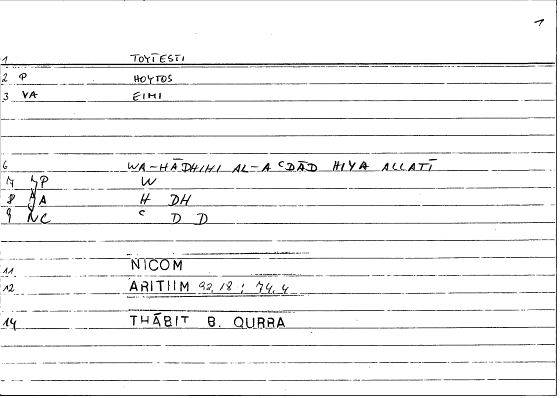 1
1 TOYTESTI
2 P HOYTOS
3 VA EIMI
6 WA-HĀDHIHI AL-AᶜDĀD HIYA ALLATĪ
7 P W
8 A H DH
9 NC ᶜ D D
11 NICOM
12 ARITIIM 92,18 ; 74,4
14 THĀBIT B. QURRA